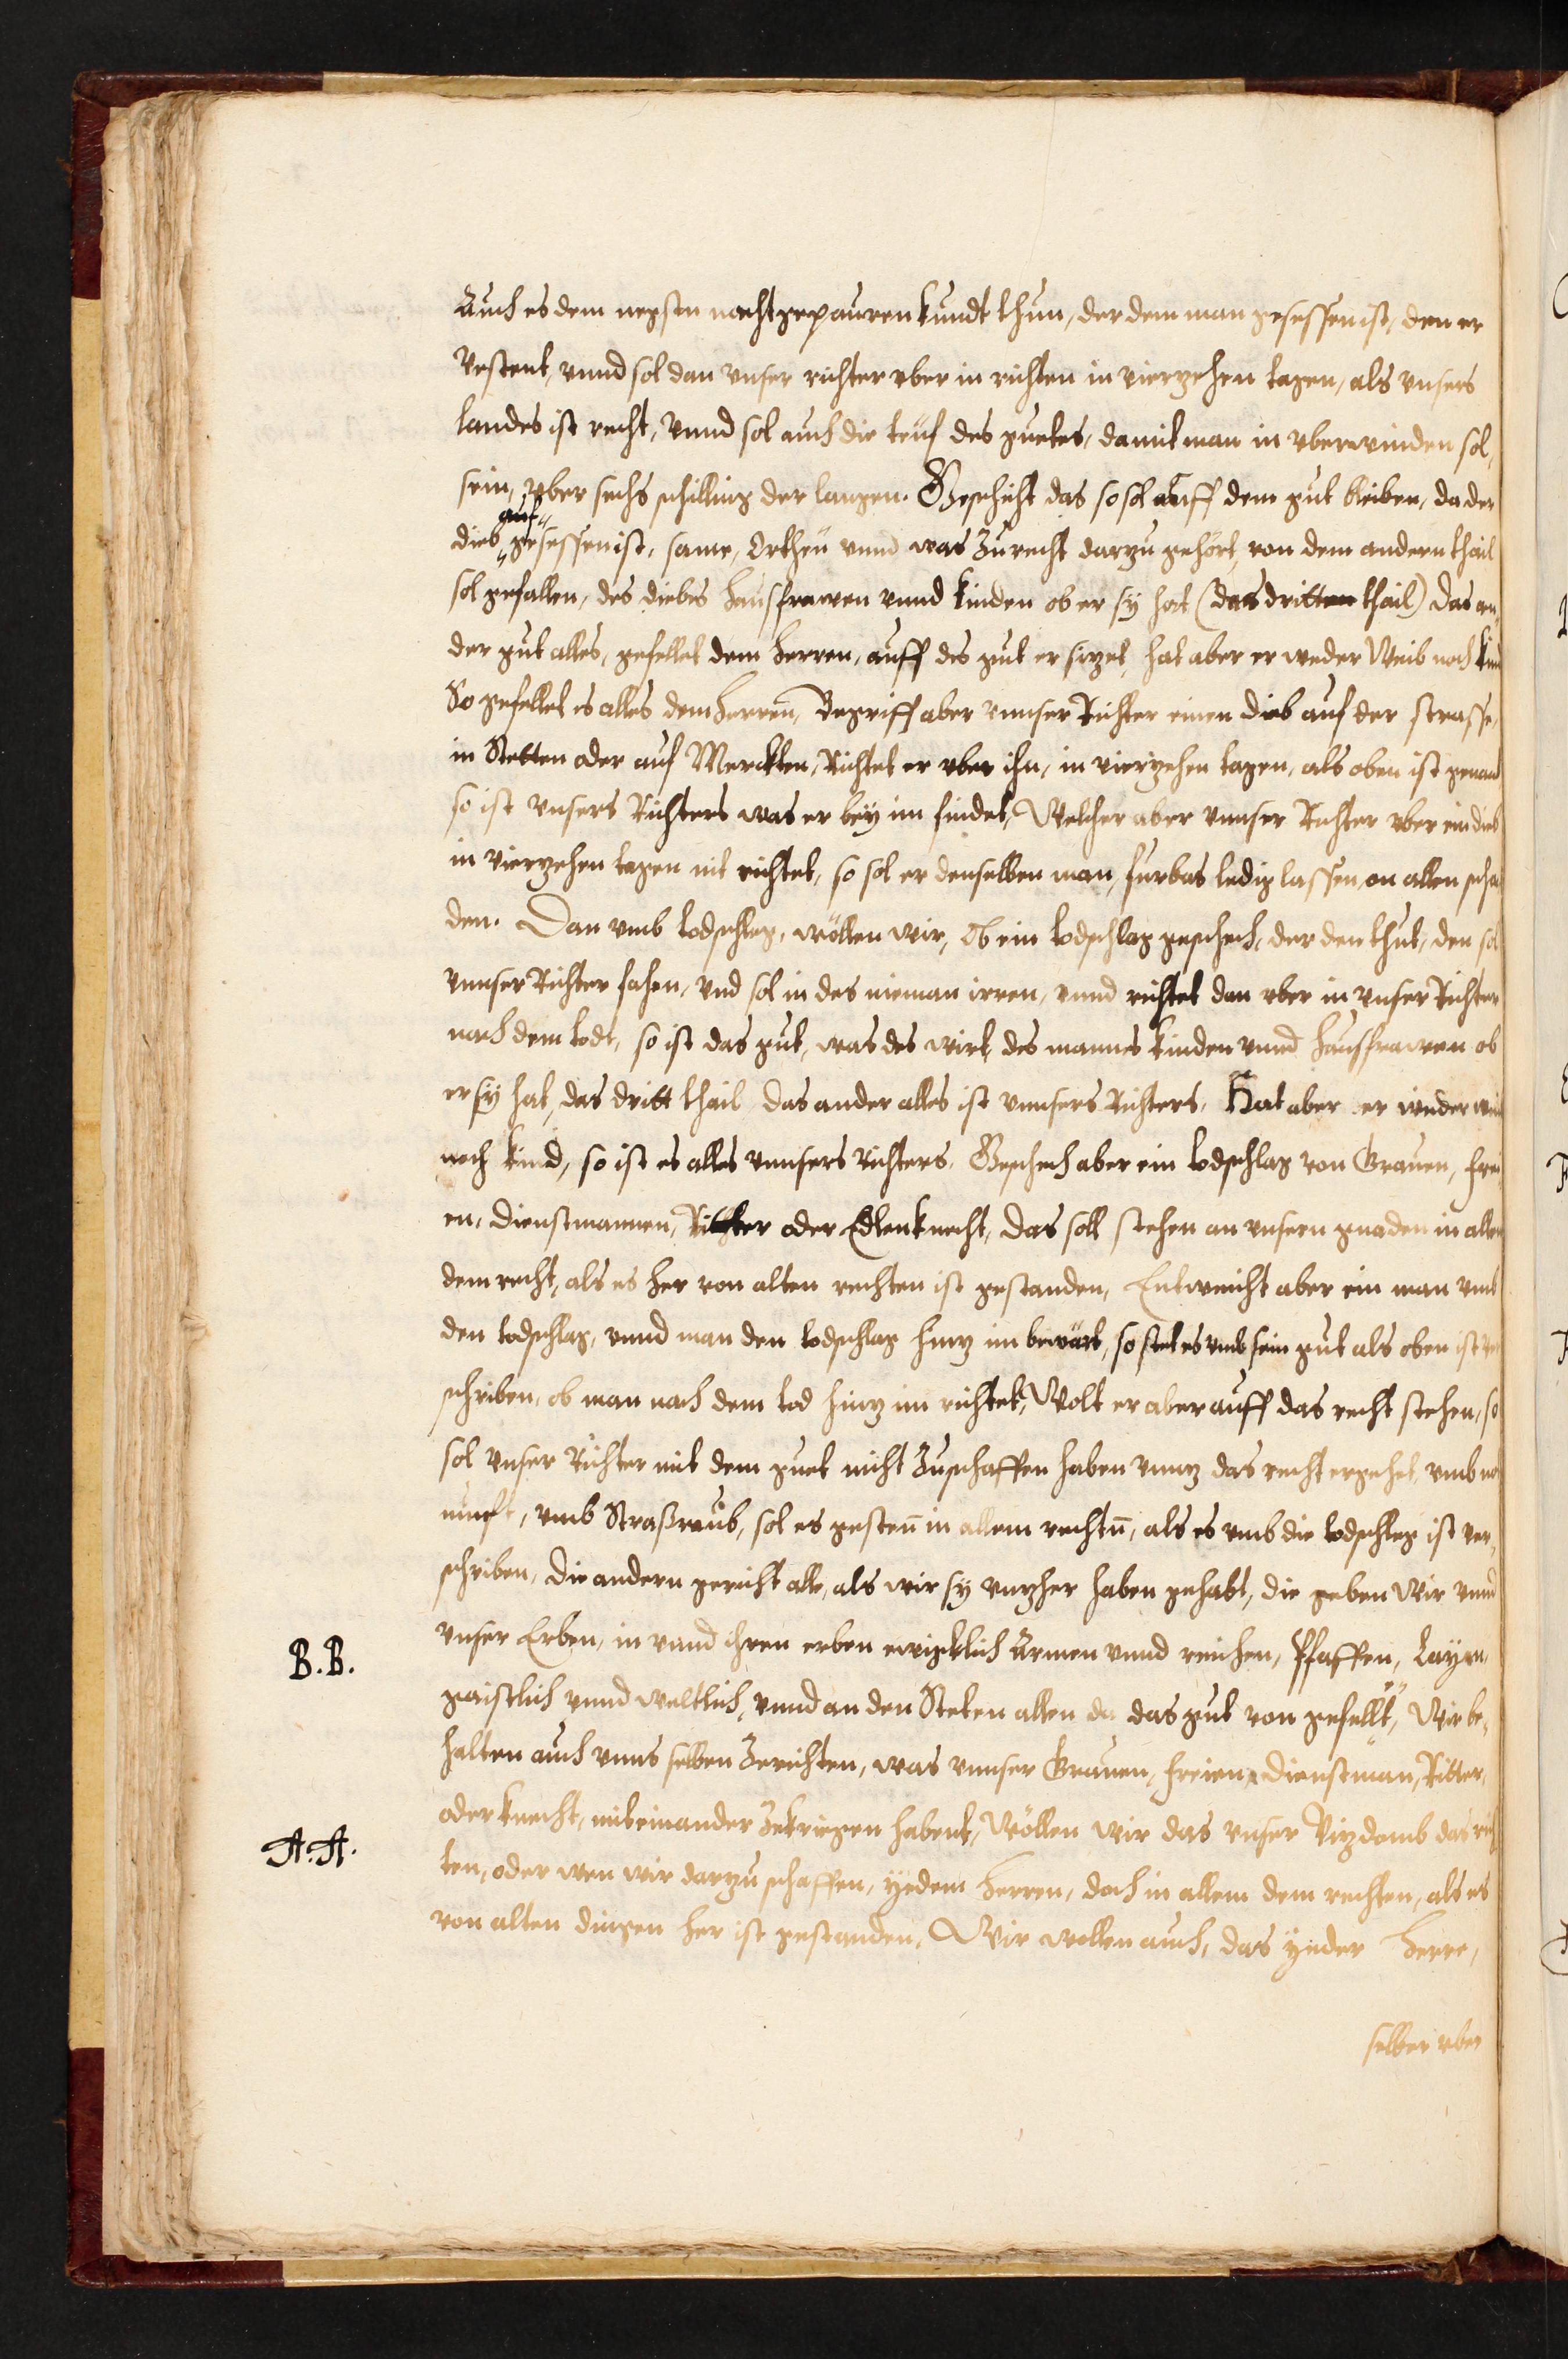 Auch es dem negsten nachtgepauren kundt thun, der dem man gesessen ist, den er
vestent, vnnd sol dan vnser richter vber in richten in vierzehen tagen, als vnsers
landes ist recht, Vnnd sol auch die teuf des guetes, damit man in vberwinden sol,
sein, vber sechs schilling der langen. Geschicht das so sol auff dem gut bleiben, da der
auf
dieb gesessen ist, same, Ertheu vnnd was zu recht darzu gehört, von dem andern thail
sol gefallen, des diebes hausfrawen vnnd kinden ob er sy hat (das dritten thail) das an
der gut alles, gefellet dem herren, auff des gut er sizet, hat aber er weder Weib noch kind
So gefellet es alles dem herren, Begriff aber vnnser Richter einen dieb auf der strasse,
in Stetten oder auf Merckten, Richtet er vber ihn, in vierzehen tagen, als oben ist genant
so ist vnsers Richters was er bey im findet, Welcher aber vnnser Richter vber ein dieb
in vierzehen tagen nit richtet, so sol er denselben man, furbas ledig lassen, on allen scha
den. Dan vmb todschleg, wöllen wir, Ob ein todschlag geschech, der den thut, den sol
vnnser Richter fahen, vnd sol in des nieman irren, vnnd richtet dan vber in vnser Richter
nach dem todt, so ist das gut, was des wirt, des mannes kinden vnnd hausfrawen ob
er sy hat, das dritt thail das ander alles ist vnnsers Richters, Hat aber er weder weib
noch kind, so ist es alles vnnsers Richters. Geschech aber ein todschlag von Grauen, frei
en, dienstmannen, Ritter oder Edlenknecht, das soll stehen an vnsern gnaden in allen
dem recht, als es her von alten rechten ist gestanden, Entweicht aber ein man vmb
den todschlag, vnnd man den todschlag hinz im bewärt, so stet es vmb sein gut als oben ist ver
schriben, ob man nach dem tod hinz im richtet, Wolt er aber auff das recht stehen, so
sol vnser Richter mit dem guet nicht zuschaffen haben vnnz das recht ergehet, vmb not
nunft, vmb Straßraub, sol es gesten in allem rechtn, als es vmb die todschleg ist ver
schriben, die andern gericht alle, als wir sy vnzher haben gehabt, die geben Wir vnnd
vnser Erben, in vnnd ihren erben ewigklich Armen vnnd reichen, Pfaffen, Layen,
B.B.
gaistlich vnnd weltlich, vnnd an den Steten allen da das gut von gefellt, Wir be
halten auch vnns selben Zerichten, was vnnser Grauen, freien, dienstman, Ritter,
oder knecht, miteinander Zekriegen habent, Wöllen wir das vnser Vizdomb das rich
A.A.
ten, oder wen wir darzu schaffen, yedem herren, doch in allem dem rechten, als es
von alten dingen her ist gestanden. Wir wollen auch, das yeder herre,
selber vber